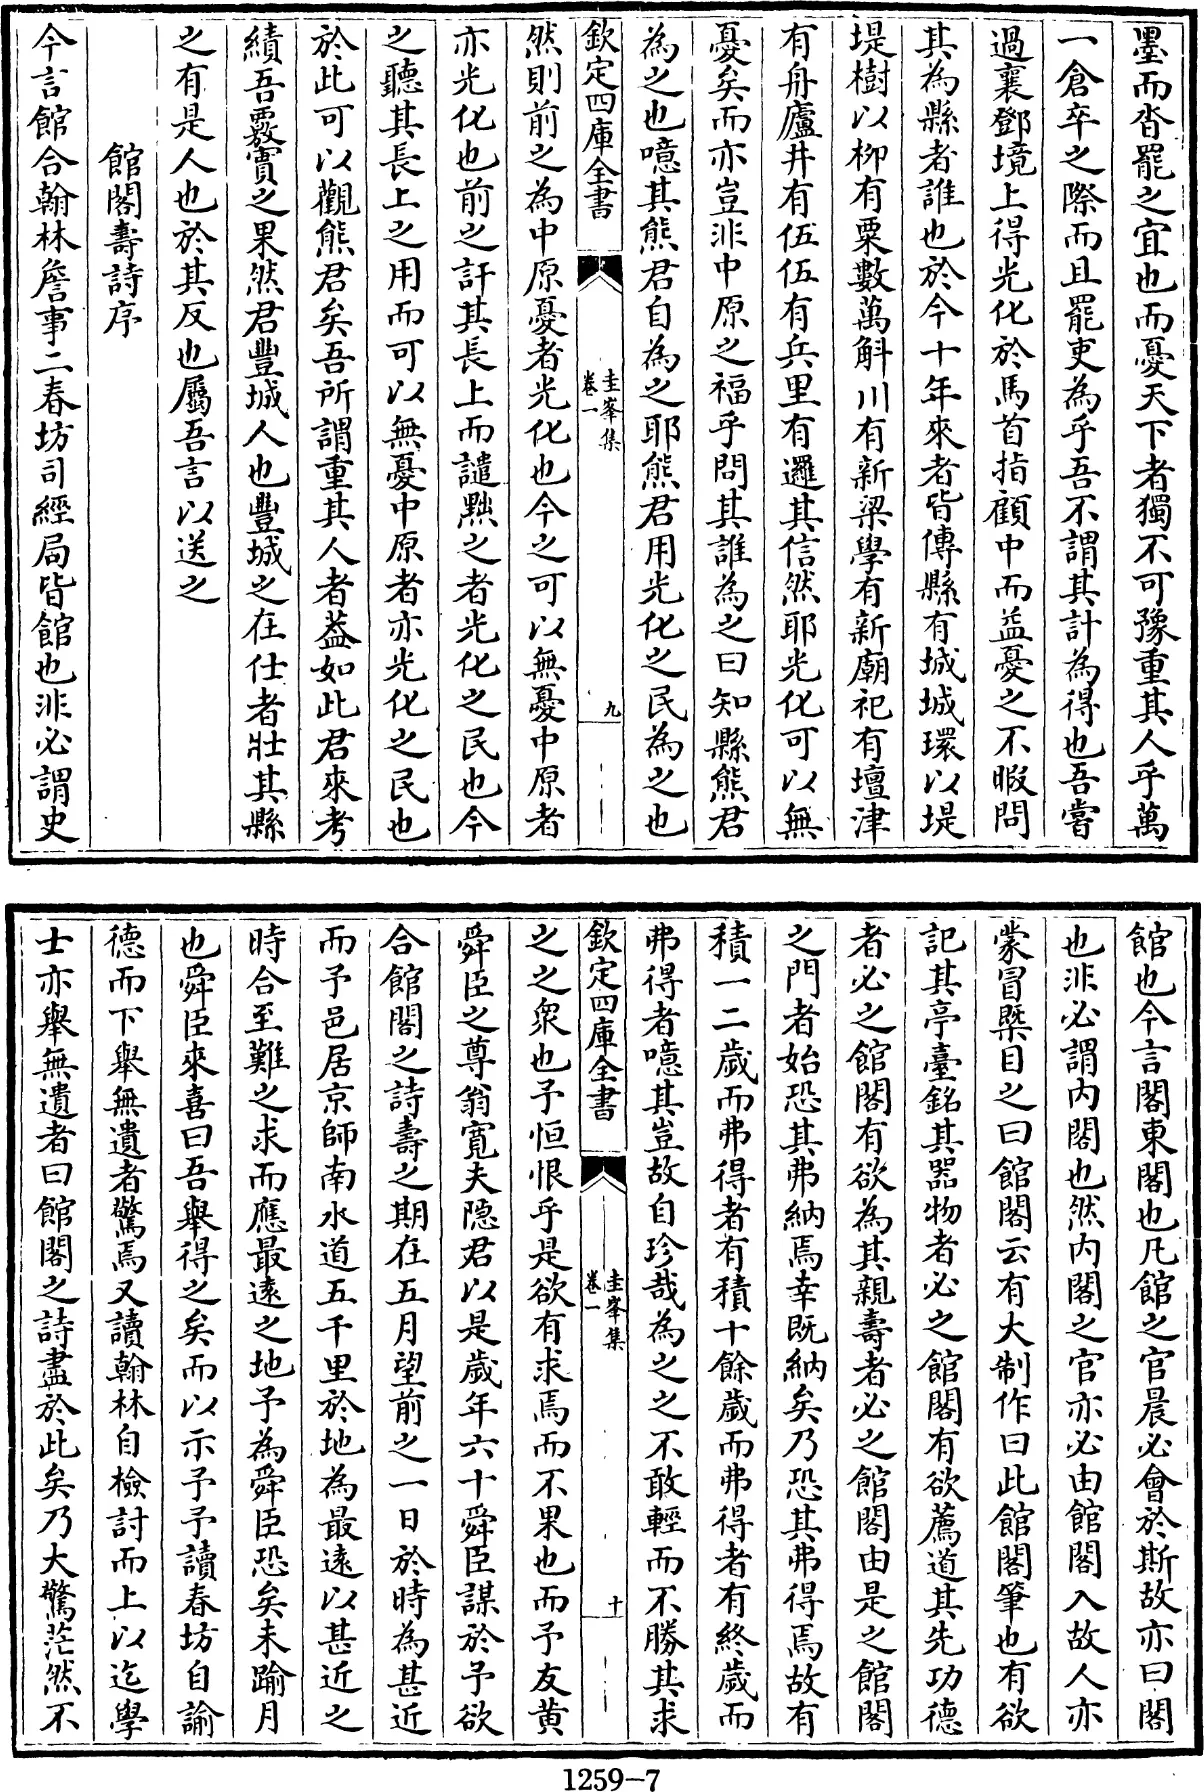 墨而沓罷之宜也而憂天下者獨不可豫重其人乎萬
一倉卒之際而且罷吏為乎吾不謂其計為得也吾嘗
過襄鄧境上得光化於馬首指顧中而益憂之不暇問
其為縣者誰也於今十年來者皆傳縣有城城環以堤
堤樹以柳有粟數萬斛川有新梁學有新廟祀有壇津
有舟廬井有伍伍有兵里有邏其信然耶光化可以無
憂矣而亦豈非中原之福乎問其誰為之曰知縣熊君
為之也噫其熊君自為之耶熊君用光化之民為之也
欽定四庫全書
圭峯集
卷一
九
然則前之為中原憂者光化也今之可以無憂中原者
亦光化也前之訐其長上而譴黜之者光化之民也今
之聽其長上之用而可以無憂中原者亦光化之民也
於此可以觀熊君矣吾所謂重其人者葢如此君來考
績吾覈實之果然君豐城人也豐城之在仕者壯其縣
之有是人也於其反也屬吾言以送之
館閣壽詩序
今言館合翰林詹事二春坊司經局皆館也非必謂史
館也今言閣東閣也凡館之官晨必會於斯故亦曰閣
也非必謂内閣也然内閣之官亦必由館閣入故人亦
蒙冒槩目之曰館閣云有大制作曰此館閣筆也有欲
記其亭臺銘其器物者必之館閣有欲薦道其先功德
者必之館閣有欲為其親壽者必之館閣由是之館閣
之門者始恐其弗納焉幸既納矣乃恐其弗得焉故有
積一二歲而弗得者有積十餘歲而弗得者有終歲而
弗得者噫其豈故自珍哉為之之不敢輕而不勝其求
欽定四庫全書
圭峯集
卷一
十
之之衆也予恒恨乎是欲有求焉而不果也而予友黄
舜臣之尊翁寛夫隠君以是歲年六十舜臣謀於予欲
合館閣之詩壽之期在五月望前之一日於時為甚近
而予邑居京師南水道五千里於地為最遠以甚近之
時合至難之求而應最遠之地予為舜臣恐矣未踰月
也舜臣來喜曰吾舉得之矣而以示予予讀春坊自諭
德而下舉無遺者驚焉又讀翰林自檢討而上以迄學
士亦舉無遺者曰館閣之詩盡於此矣乃大驚茫然不
1259-7